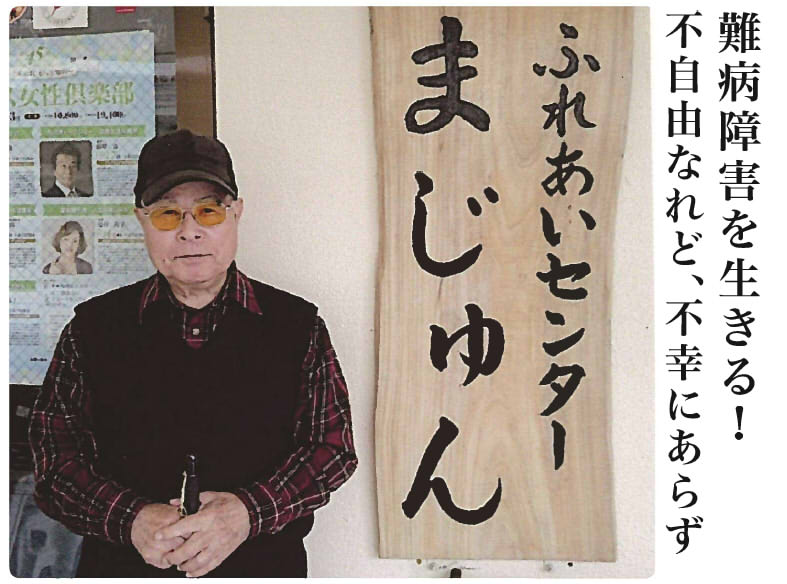 難病障害を生きる！
不自由なれど、不幸にあらず
ふれあいセンター
まじゅん
女性倶楽部